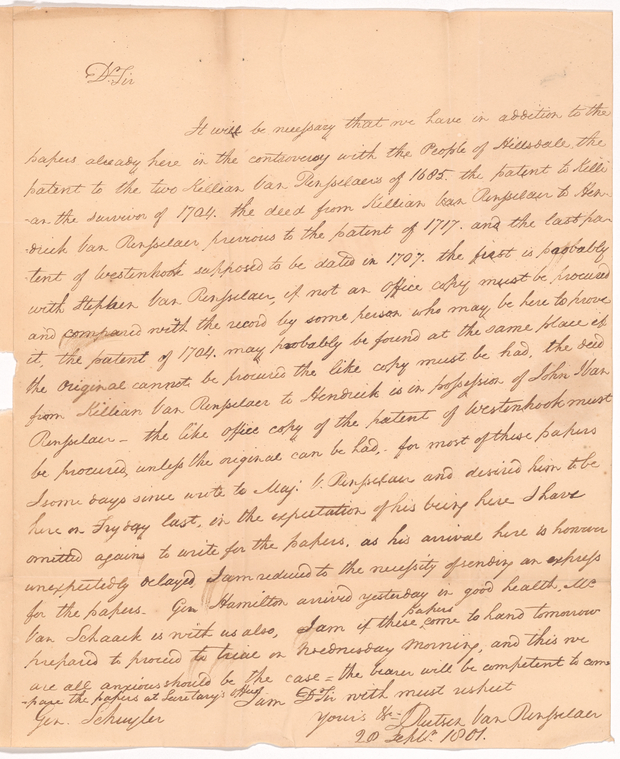 Dr Sir
It will be necessary that we have in addition to the
papers already here in the controversy with the People of Hillsdale, the
patent to the two Killian Van Rensselaers of 1685. the patent to Killi
-an the survivor of 1704. the deed from Killian Van Rensselaer to Hen-
-drick Van Rensselaer previous to the patent of 1717. and the last pa-
-tent of Westenhook supposed to be dated in 1707. the first is probably
with Stephen Van Rensselaer, if not an office copy must be procured
and compared with the record by some person who may be here to prove
it, the patent of 1704. may probably be found at the same place if
the original cannot be procured the like copy must be had, the deed
from Killian Van Rensselaer to Hendrick is in possession of John J Van
Rensselaer – the like office copy of the patent of Westenhook must
be procured, unless the original can be had, – for most of these papers
I some days since wrote to Maj. V. Rensselaer and desired him to be
here on Fryday last, in the expectation of his being here I have
omitted again to write for the papers, as his arrival here is however
unexpectedly delayed, I am reduced to the necessity of sending an express
for the papers – Gen Hamilton arrived yesterday in good health, Mr
Van Schaack is with us also, I am if these papers come to hand tomorrow
prepared to proceed to trial on Wednesday morning, and this we
are all anxious should be the case = the bearer will be competent to com
-pare the papers at Secretary's office I am Dr Sir with must respect
Gen. Schuyler yours &c – J Rutsen Van Rensselaer
20 Septr. 1801.